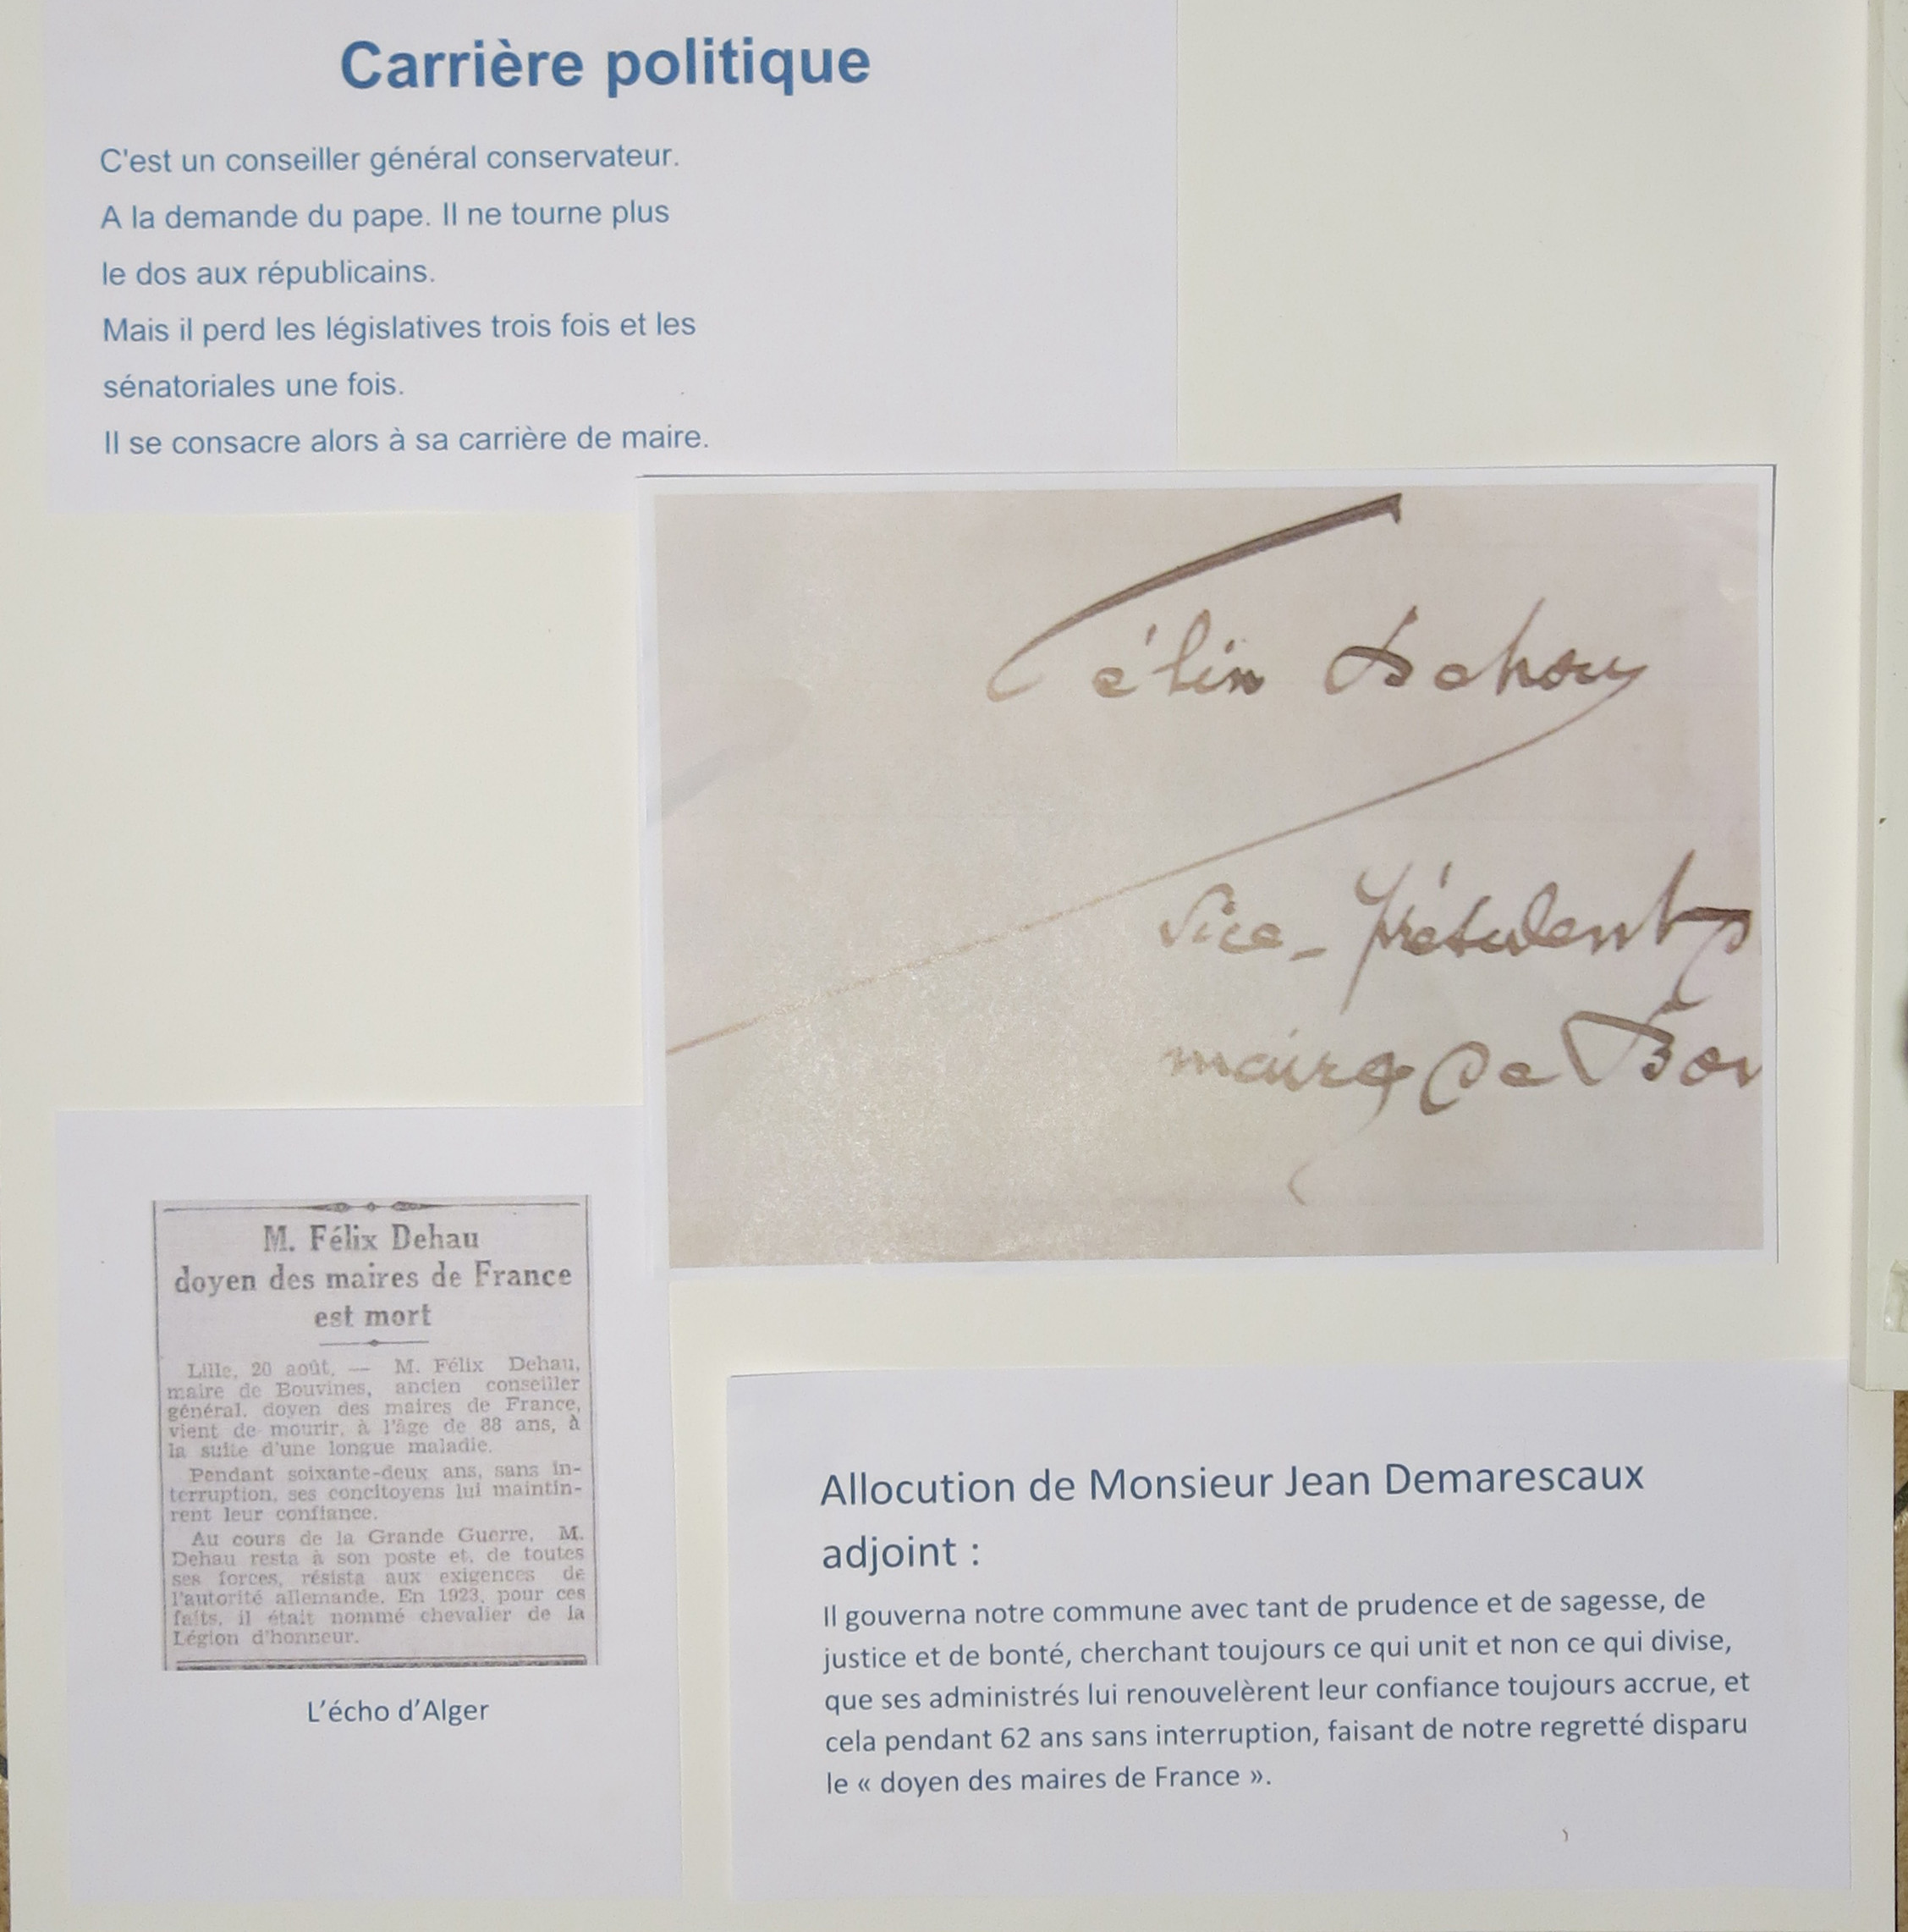 Carrière politique
C'est un conseiller général conservateur.
A la demande du pape. Il ne tourne plus
le dos aux républicains.
Mais il perd les législatives trois fois et les
sénatoriales une fois.
Il se consacre alors à sa carrière de maire.
Félix Dehau
vice-président
maire de Bou
M. Félix Dehau
doyen des maires de France
est mort
Lille, 20 août. — M. Félix Dehau,
maire de Bouvines, ancien conseiller
général, doyen des maires de France,
vient de mourir, à l'âge de 88 ans, à
la suite d'une longue maladie.
Pendant soixante-deux ans, sans in-
terruption, ses concitoyens lui maintin-
rent leur confiance.
Au cours de la Grande Guerre, M.
Dehau resta à son poste et, de toutes
ses forces, résista aux exigences de
l'autorité allemande. En 1923, pour ces
faits, il était nommé chevalier de la
Légion d'honneur.
L'écho d'Alger
Allocution de Monsieur Jean Demarescaux
adjoint :
Il gouverna notre commune avec tant de prudence et de sagesse, de
justice et de bonté, cherchant toujours ce qui unit et non ce qui divise,
que ses administrés lui renouvelèrent leur confiance toujours accrue, et
cela pendant 62 ans sans interruption, faisant de notre regretté disparu
le « doyen des maires de France ».